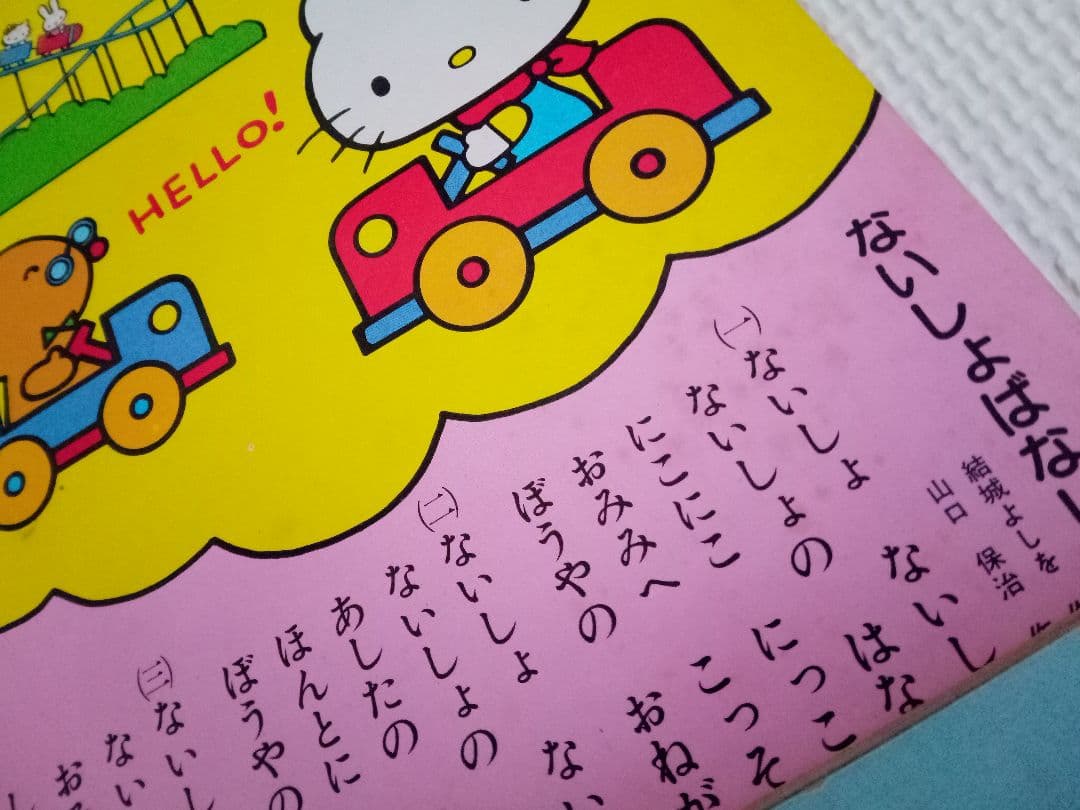 HELLO!
ないしょばなし
結城よしを
山口 保治
㈠ないしょ ないし
ないしょの はな
にこにこ にっこ
おみみへ こっそ
ぼうやの おねが
㈡ないしょ ない
ないしょの
あしたの
ほんとに
ぼうやの
㈢ないし
ない